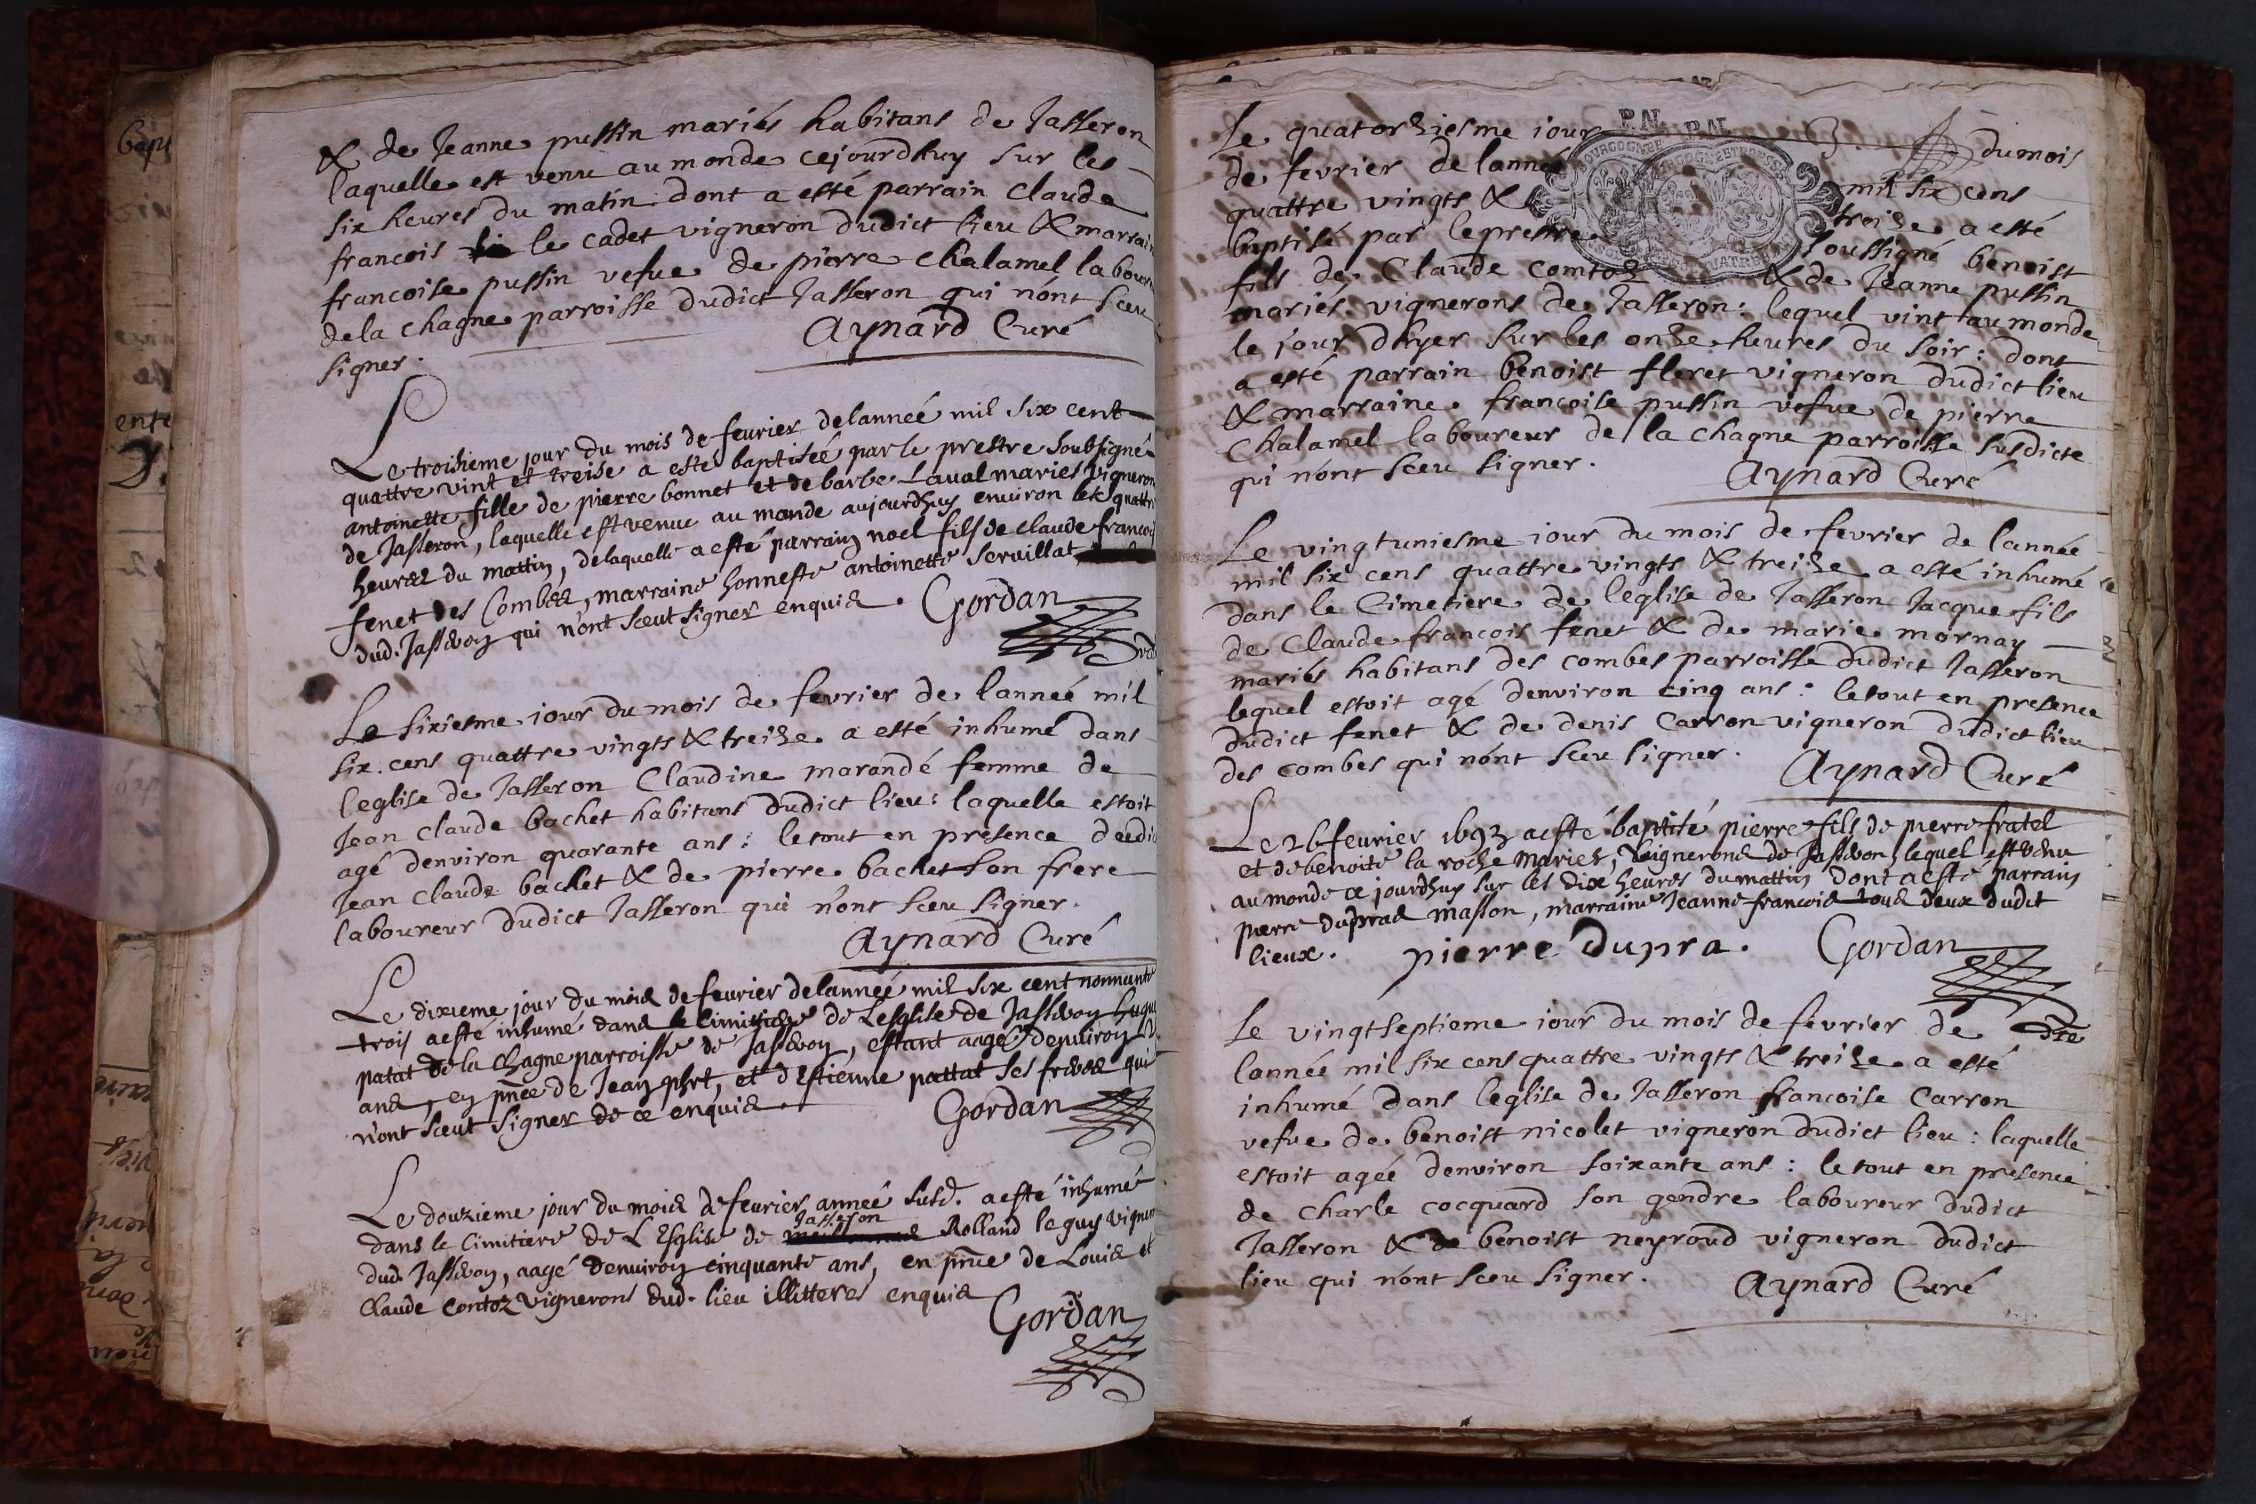 & de Jeanne pussin mariés habitans de Jasseron
laquelle est venu au monde cejourdhuy sur les
six heures du matin dont a esté parrain Claude
francois le cadet vigneron dudict lieu & marrain
francoise pussin vefue de pierre chalamel labour
de la chagne parroisse dudict Jasseron qui n'ont sceu
signer.
Aynard Curé
Le troisieme jour du mois de feurier delanneé mil six cent
quattre vint et treise a esté baptisée par le prestre soubsigné
antoinette fille de pierre bonnet et de barbe Laual maries vigneron
de Jasseron, laquelle est venue au monde aujourdhuy enuiron les quattre
heures du mattin, delaquelle a esté parrain noel fils de claude francois
fenet des Combes, marraine honneste antoinette seruillat
dud. Jasseron qui n'ont sceut signer enquis. Gordan
Le sixiesme iour du mois de fevrier de lanneé mil
six cens quattre vingts & treize a esté inhumé dans
leglise de Jasseron Claudine marandé femme de
Jean claude bachet habitans dudict lieu: laquelle estoit
agé denviron quarante ans: le tout en presence dudi
Jean claude bachet & de pierre bachet son frere
laboureur dudict Jasseron qui n'ont sceu signer.
Aynard Curé
Le dixieme jour du mois de feurier delanneé mil six cent nonnante
trois a esté inhumé dans le Cimitiere de Lesglise de Jasseron hugu
patat de la Chagne parroisse de Jasseron, estant aagé denuiron
ans, en pnce de Jean phrt, et d'Estienne pattat ses freres qui
n'ont sceut signer de ce enquis.
Gordan
Le douzieme jour du mois de feurier anneé susd. a esté inhumé
Jasseron
dans le Cimitiere de L'Esglise de Rolland leguy vigner
dud. Jasseron, aagé denuiron cinquante ans, en pnce de Louis et
Claude contoz vignerons dud. lieu illitteres enquis
Gordan
P.N. P.N.
Le quatorziesme iour du mois
de fevrier de lanneé mil six cens
quattre vingts & treize a esté
baptisé par le prestre soussigné benoist
fils de Claude comtoz & de Jeanne pussin
mariés vignerons de Jasseron: lequel vint au monde
le jour dhyer sur les onze heures du soir: dont
a esté parrain benoist floret vigneron dudict lieu
& marraine francoise pussin vefue de pierre
Chalamel laboureur de la chagne parroisse susdicte
qui n'ont sceu signer.
Aynard Curé
Le vingtuniesme iour du mois de fevrier de lannée
mil six cens quattre vingts & treize a esté inhumé
dans le Cimetiere de leglise de Jasseron Jacque fils
de Claude francois fenet & de marie mornay
mariés habitans des combes parroisse dudict Jasseron
lequel estoit agé denviron cinq ans: le tout en presence
dudict fenet & de denis Carron vigneron dudict lieu
des combes qui n'ont sceu signer.
Aynard Curé
Le 26 feurier 1693 a esté baptité pierre fils de pierre fratel
et de benoite la roche Maries, Vignerons de Jasseron, lequel est venu
au monde ce jourdhuy sur les dix heures du mattin dont a esté parrain
pierre dupras masson, marraine Jeanne francois tous deux dudit
lieux. pierre dupra. Gordan
Le vingtseptieme iour du mois de fevrier de dte
lannée mil six cens quattre vingts & treize a esté
inhumé dans leglise de Jasseron francoise Carron
vefve de benoist nicolet vigneron dudict lieu: laquelle
estoit agée denviron soixante ans: le tout en presence
de charle cocquard son gendre laboureur dudict
Jasseron & de benoist neyroud vigneron dudict
lieu qui n'ont sceu signer.
Aynard Curé